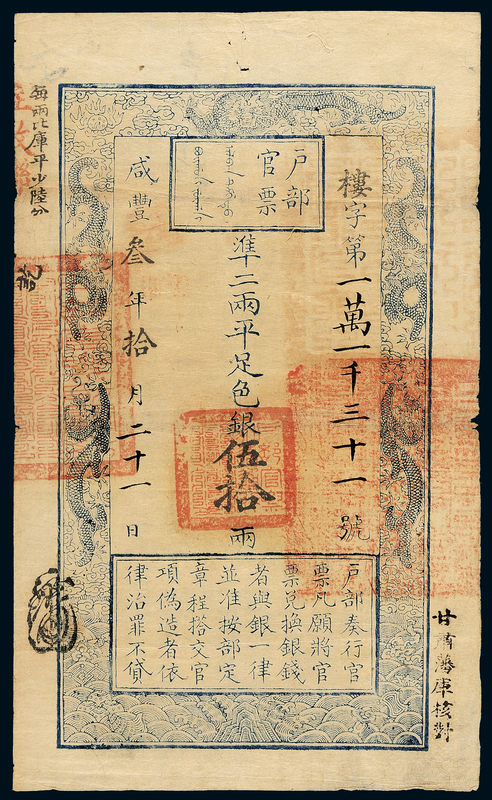 樓字第一萬一千三十一號
戶部
官票
準二兩平足色銀伍拾兩
咸豐叁年拾月二十一日
戶部奏行官
票凡願將官
票兌換銀錢
者與銀一律
並準按部定
章程搭交官
項偽造者依
律治罪不貸
每兩比庫平少陸分
甘肅藩庫核對